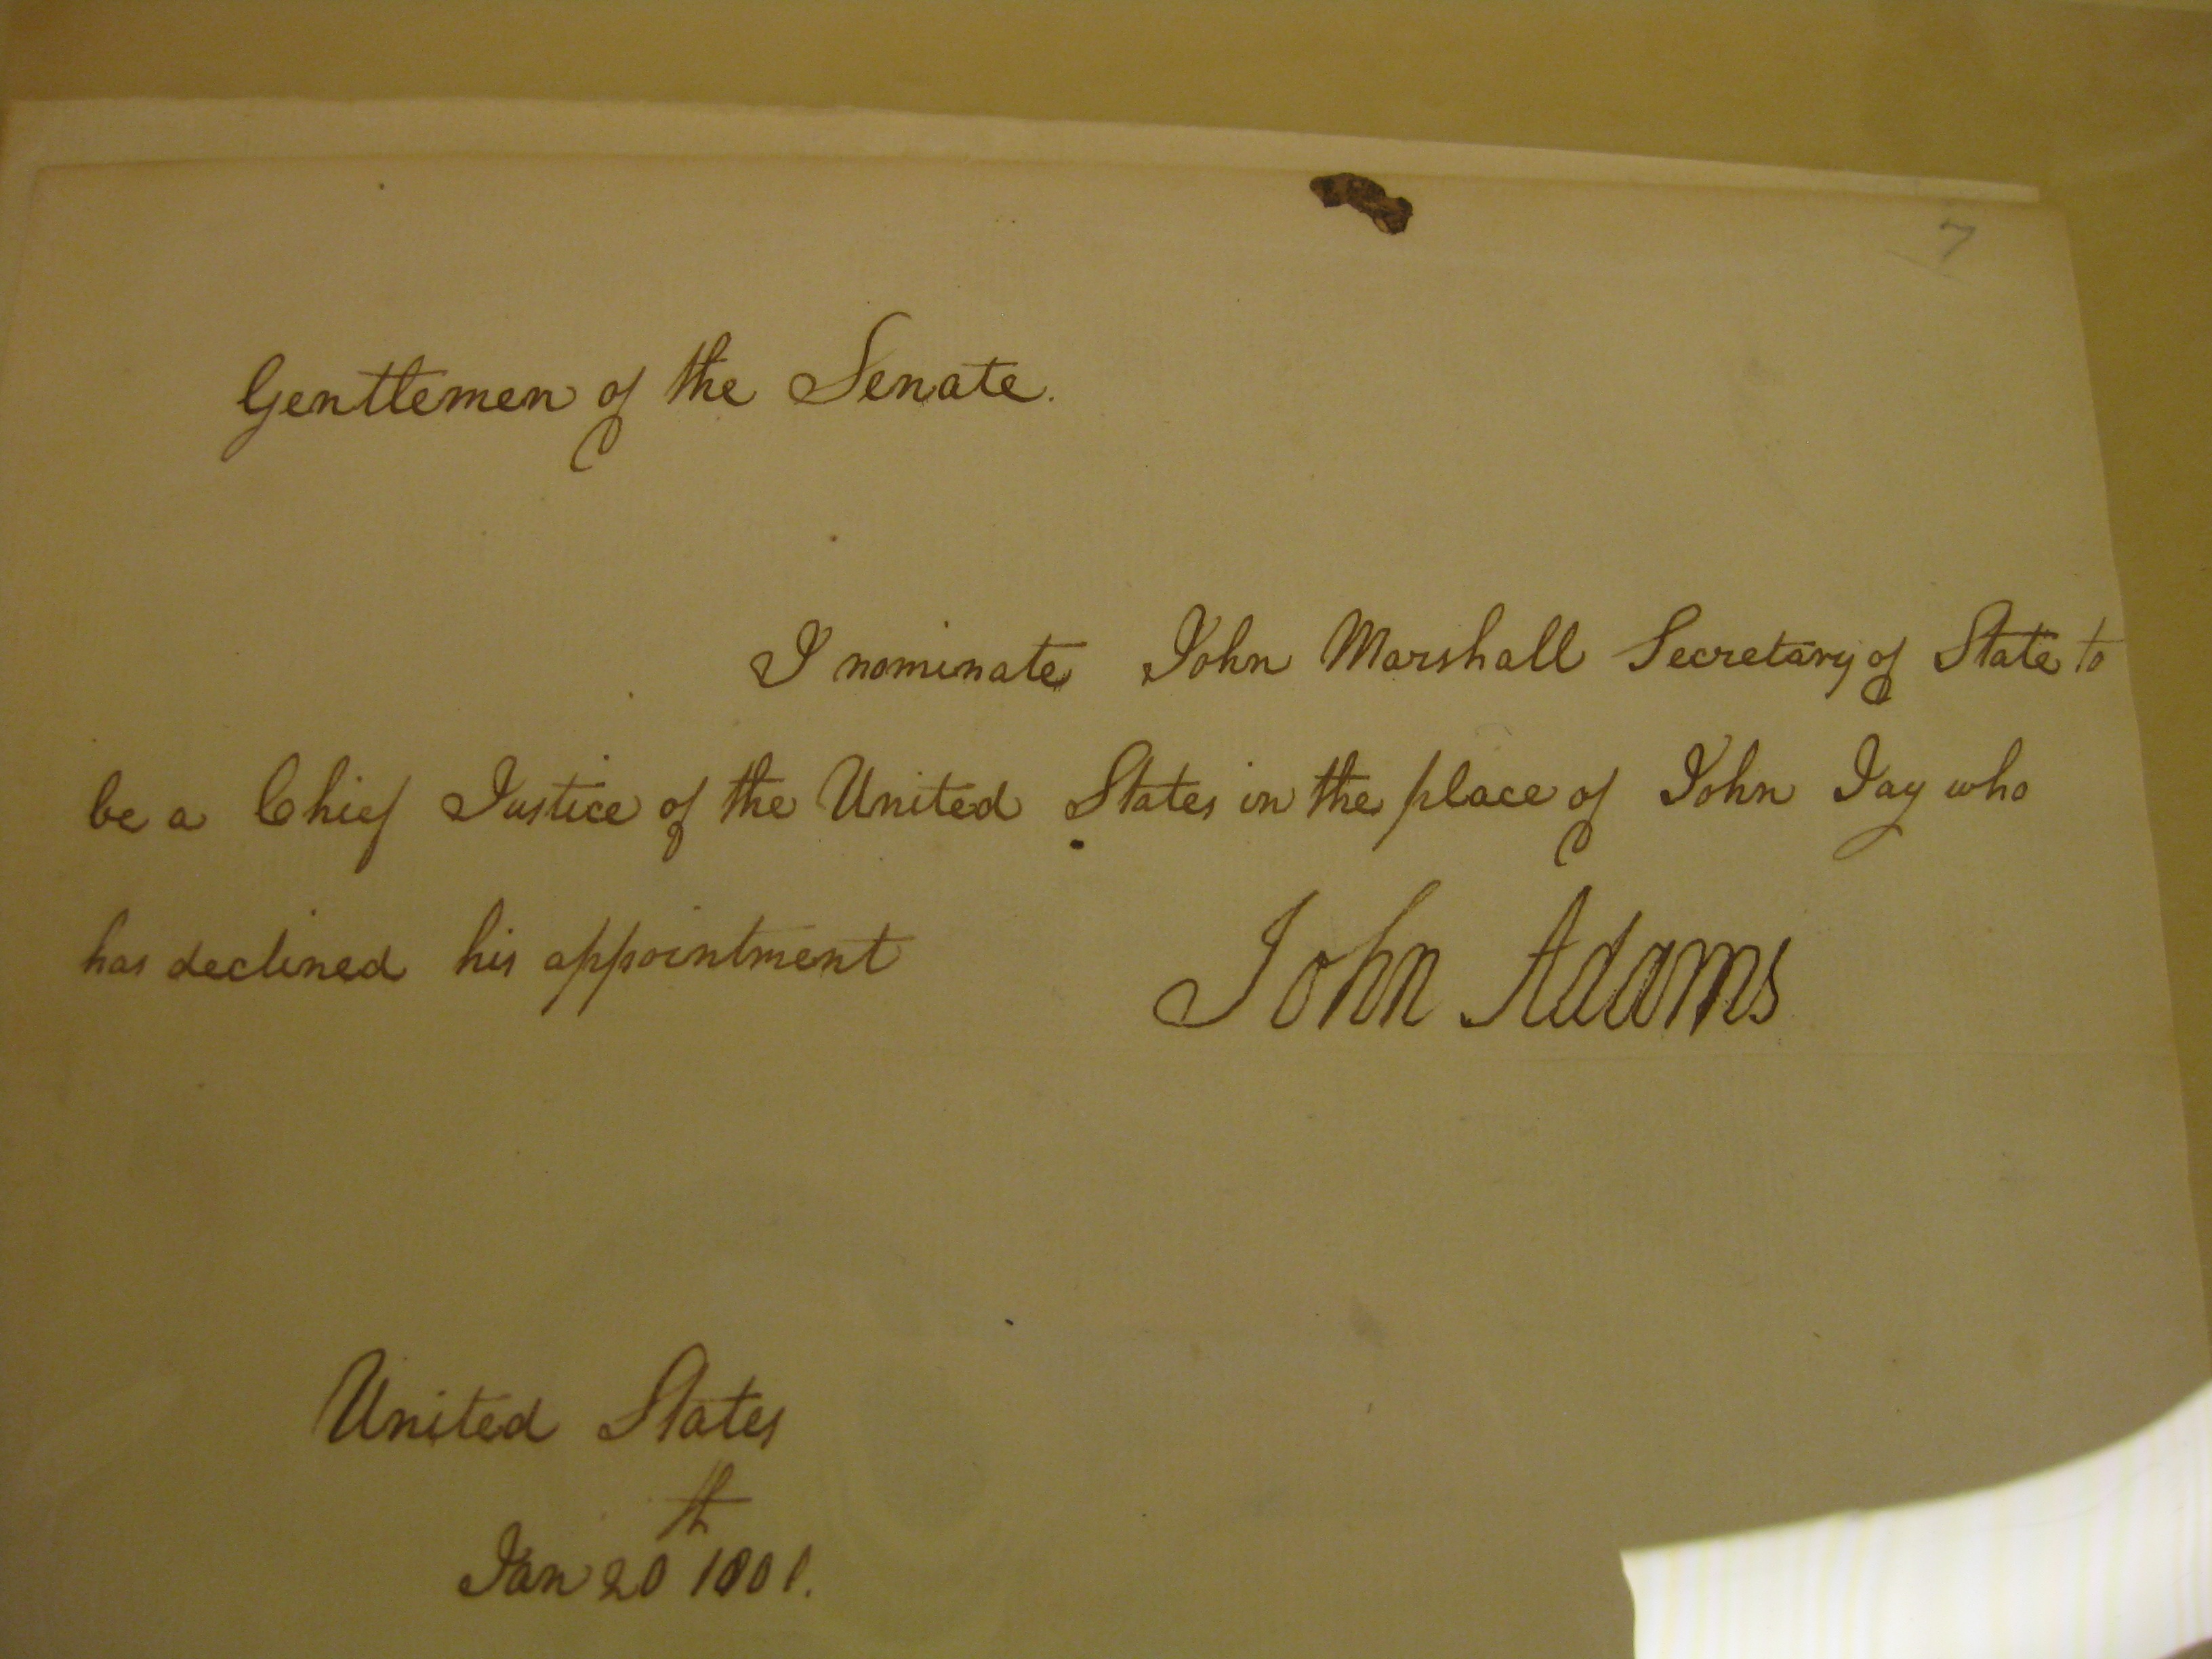 7
Gentlemen of the Senate.
I nominate John Marshall Secretary of State to
be a Chief Justice of the United States in the place of John Jay who
has declined his appointment
John Adams
United States
Jan 20th 1801.